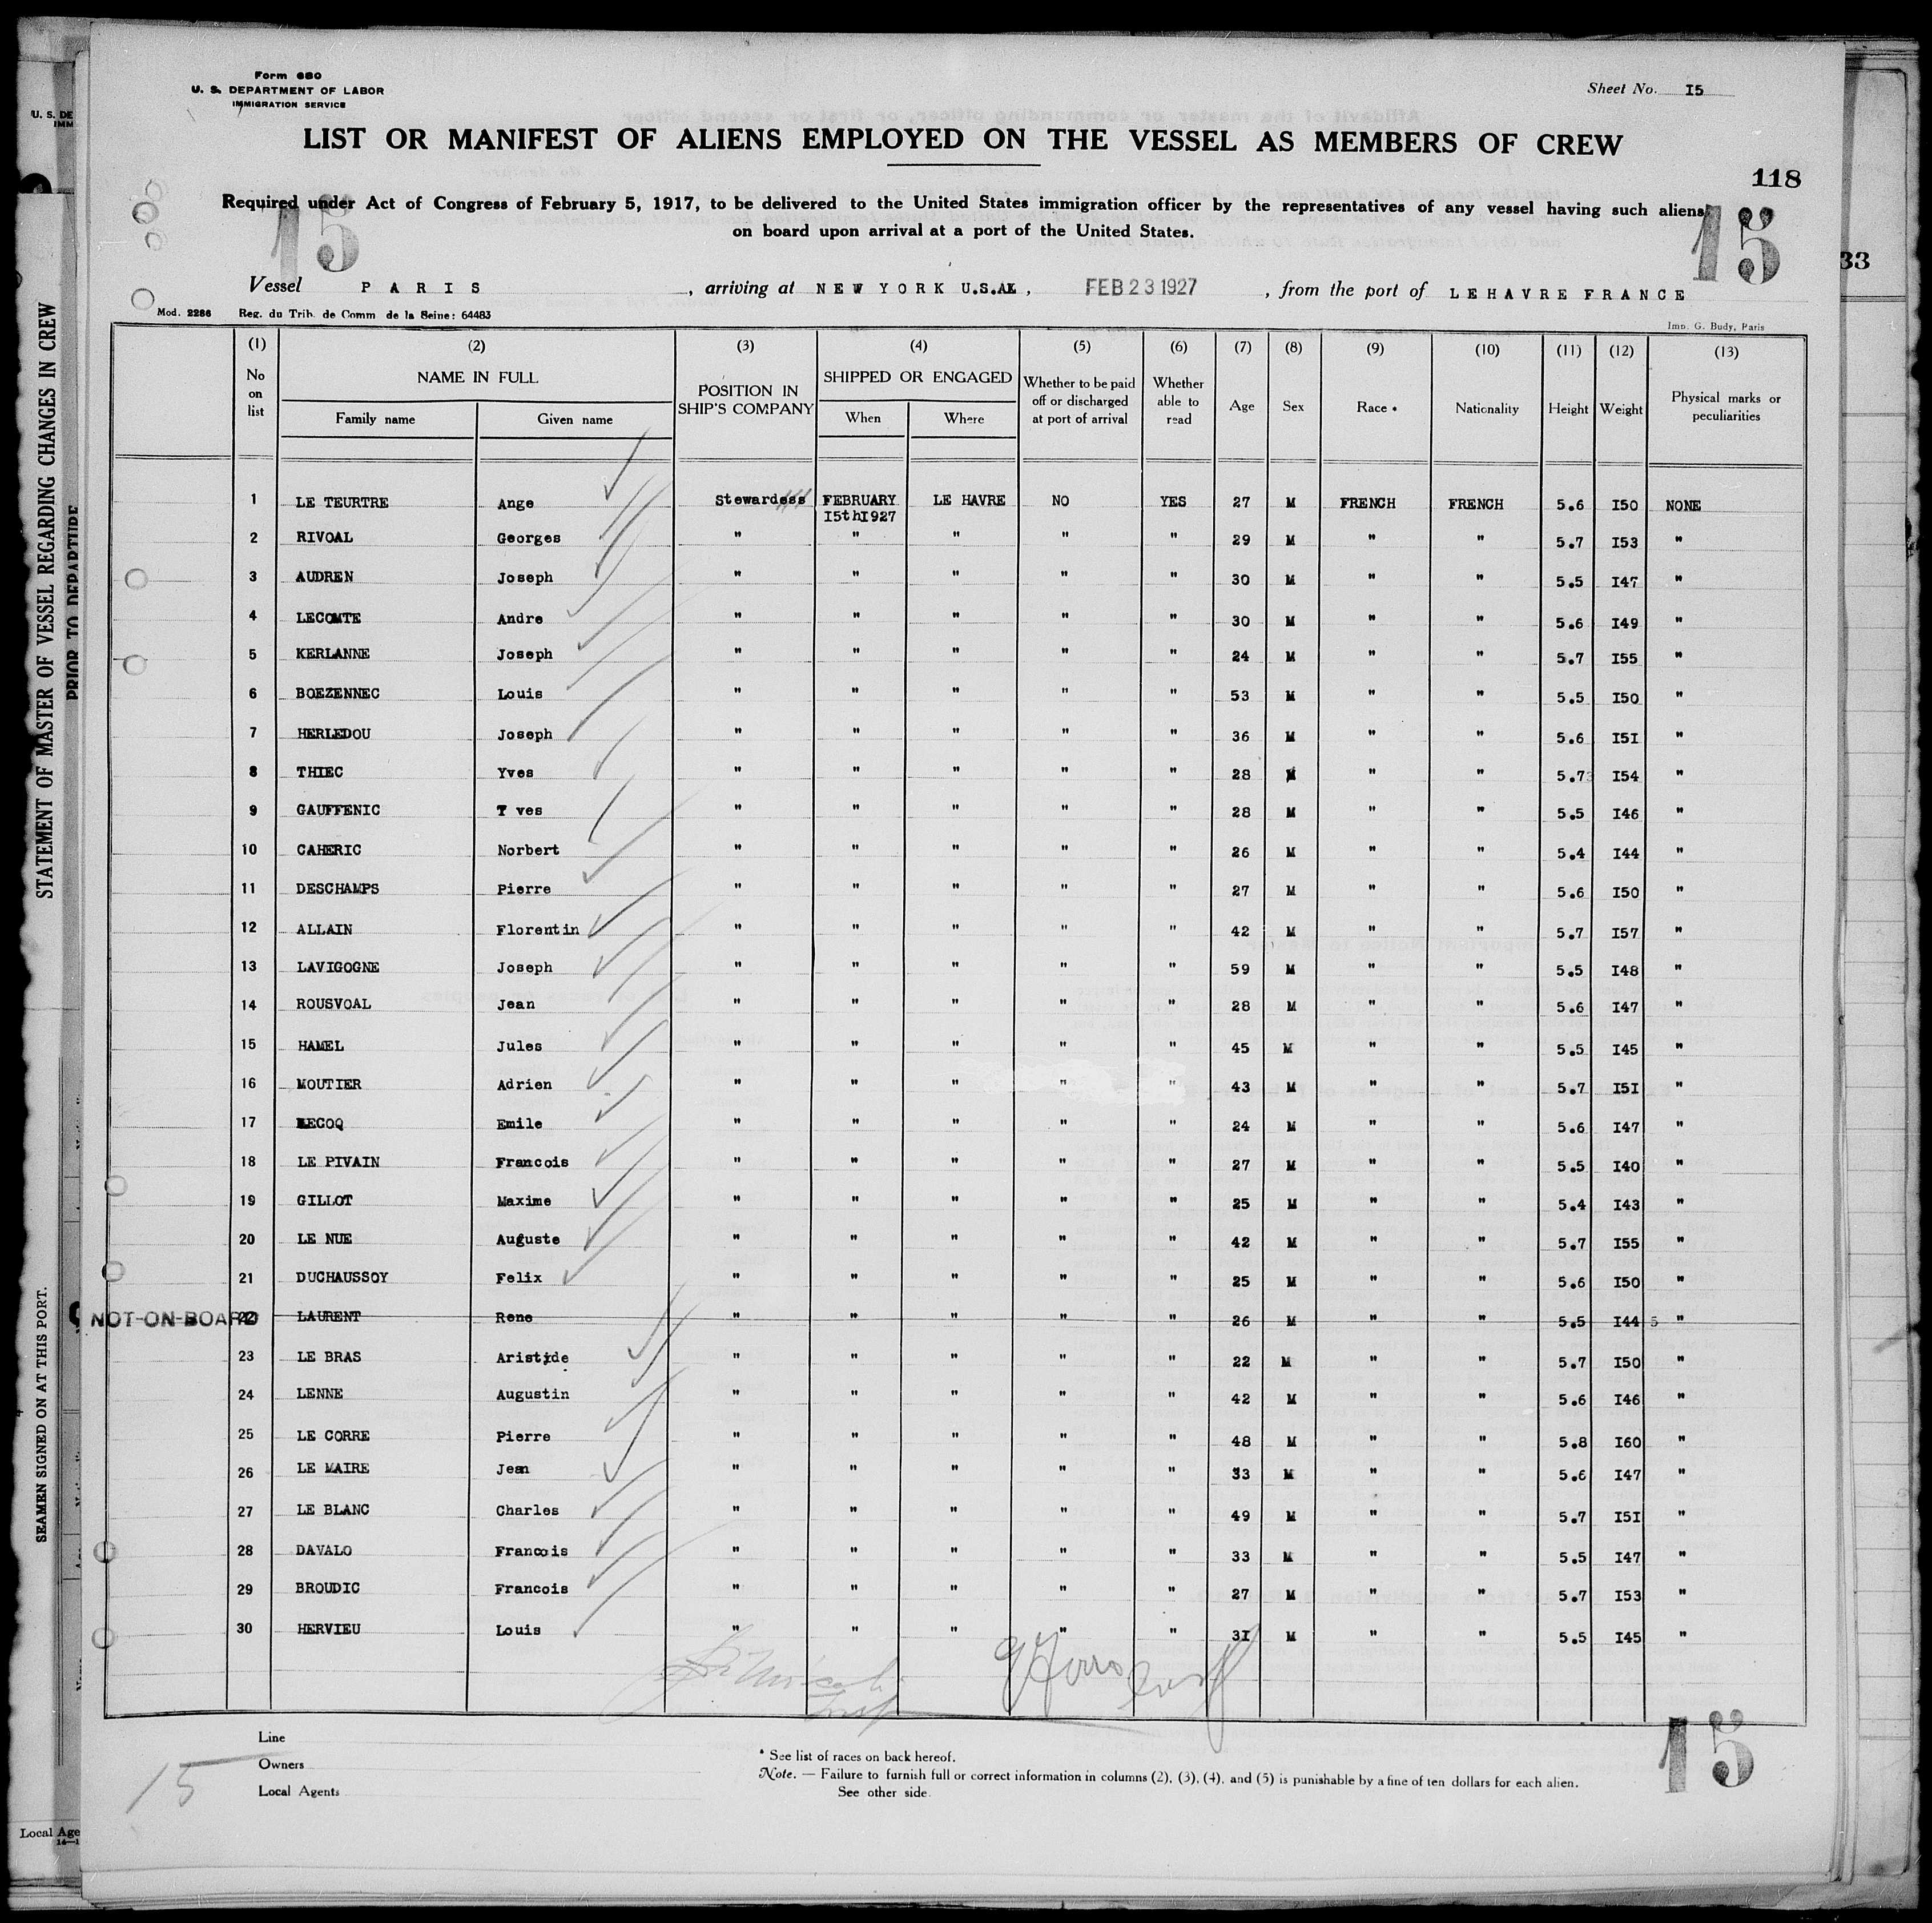 Form 680
U. S. DEPARTMENT OF LABOR
IMMIGRATION SERVICE
Sheet No. I5
LIST OR MANIFEST OF ALIENS EMPLOYED ON THE VESSEL AS MEMBERS OF CREW
118
Required under Act of Congress of February 5, 1917, to be delivered to the United States immigration officer by the representatives of any vessel having such aliens
on board upon arrival at a port of the United States.
15
15
Vessel PARIS , arriving at NEW YORK U.S.A , FEB 23 1927 , from the port of LEHAVRE FRANCE
Mod. 2286 Reg. du Trib. de Comm de la Seine: 64483
Imp. G. Budy, Paris
(1) (2) (3) (4) (5) (6) (7) (8) (9) (10) (11) (12) (13)
No on list NAME IN FULL POSITION IN SHIP'S COMPANY SHIPPED OR ENGAGED Whether to be paid off or discharged at port of arrival Whether able to read Age Sex Race * Nationality Height Weight Physical marks or peculiarities
Family name Given name When Where
1 LE TEURTRE Ange Stewardess FEBRUARY I5thI927 LE HAVRE NO YES 27 M FRENCH FRENCH 5.6 I50 NONE
2 RIVOAL Georges " " " " " 29 M " " 5.7 I53 "
3 AUDREN Joseph " " " " " 30 M " " 5.5 I47 "
4 LECOMTE Andre " " " " " 30 M " " 5.6 I49 "
5 KERLANNE Joseph " " " " " 24 M " " 5.7 I55 "
6 BOEZENNEC Louis " " " " " 53 M " " 5.5 I50 "
7 HERLEDOU Joseph " " " " " 36 M " " 5.6 I5I "
8 THIEC Yves " " " " " 28 M " " 5.7 I54 "
9 GAUFFENIC Y ves " " " " " 28 M " " 5.5 I46 "
10 CAHERIC Norbert " " " " " 26 M " " 5.4 I44 "
11 DESCHAMPS Pierre " " " " " 27 M " " 5.6 I50 "
12 ALLAIN Florentin " " " " " 42 M " " 5.7 I57 "
13 LAVIGOGNE Joseph " " " " " 59 M " " 5.5 I48 "
14 ROUSVOAL Jean " " " " " 28 M " " 5.6 I47 "
15 HAMEL Jules " " " " " 45 M " " 5.5 I45 "
16 MOUTIER Adrien " " " " " 43 M " " 5.7 I5I "
17 LECOQ Emile " " " " " 24 M " " 5.6 I47 "
18 LE PIVAIN Francois " " " " " 27 M " " 5.5 I40 "
19 GILLOT Maxime " " " " " 25 M " " 5.4 I43 "
20 LE NUE Auguste " " " " " 42 M " " 5.7 I55 "
21 DUCHAUSSOY Felix " " " " " 25 M " " 5.6 I50 "
NOT-ON-BOARD 22 LAURENT Rene " " " " " 26 M " " 5.5 I44 5 "
23 LE BRAS Aristide " " " " " 22 M " " 5.7 I50 "
24 LENNE Augustin " " " " " 42 M " " 5.6 I46 "
25 LE CORRE Pierre " " " " " 48 M " " 5.8 I60 "
26 LE MAIRE Jean " " " " " 33 M " " 5.6 I47 "
27 LE BLANC Charles " " " " " 49 M " " 5.7 I5I "
28 DAVALO Francois " " " " " 33 M " " 5.5 I47 "
29 BROUDIC Francois " " " " " 27 M " " 5.7 I53 "
30 HERVIEU Louis " " " " " 3I M " " 5.5 I45 "
Line
Owners
Local Agents
15
* See list of races on back hereof.
Note. — Failure to furnish full or correct information in columns (2), (3), (4), and (5) is punishable by a fine of ten dollars for each alien.
See other side.
15
U. S. DE
IMM
STATEMENT OF MASTER OF VESSEL REGARDING CHANGES IN CREW
PRIOR TO DEPARTURE
SEAMEN SIGNED ON AT THIS PORT.
Local Age
33